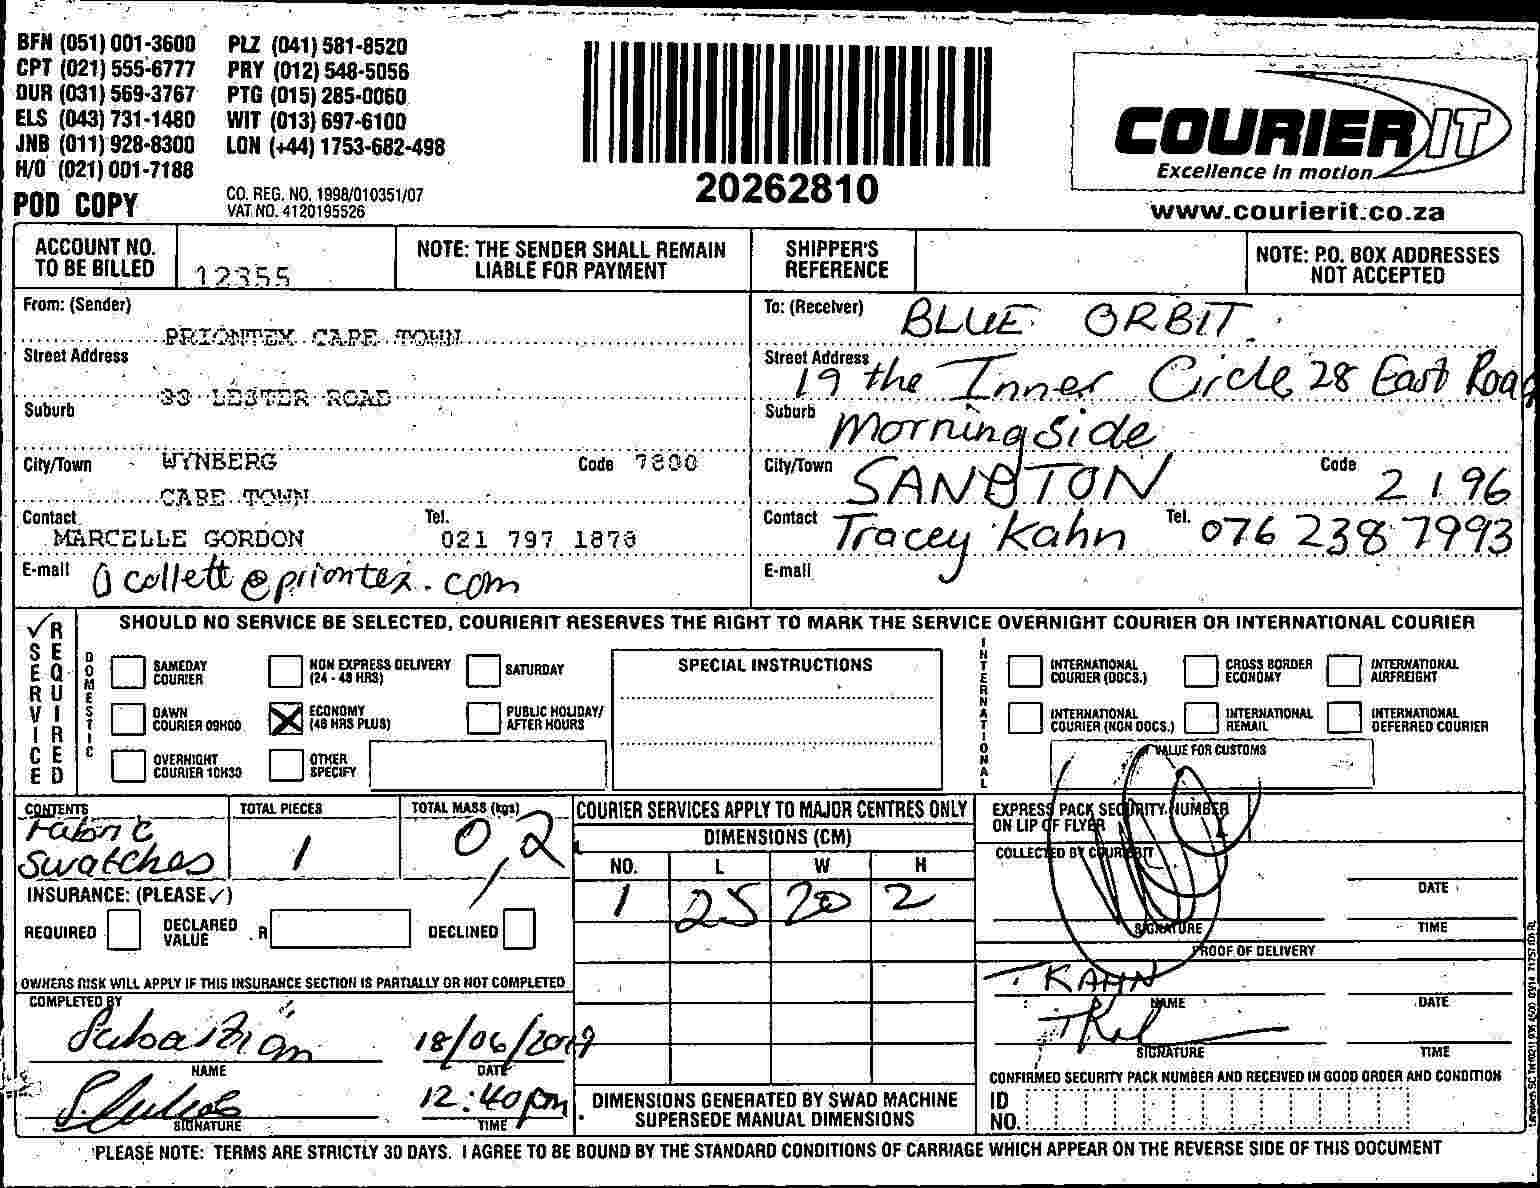 BFN (051) 001-3600 PLZ (041) 581-8520
CPT (021) 555-6777 PRY (012) 548-5056
DUR (031) 569-3767 PTG (015) 285-0060
ELS (043) 731-1480 WIT (013) 697-6100
JNB (011) 928-8300 LON (+44) 1753-682-498
H/O (021) 001-7188
POD COPY
CO. REG. NO. 1998/010351/07
VAT NO. 4120195526
20262810
COURIER IT
Excellence in motion
www.courierit.co.za
ACCOUNT NO. TO BE BILLED 12355
NOTE: THE SENDER SHALL REMAIN LIABLE FOR PAYMENT
SHIPPER'S REFERENCE
NOTE: P.O. BOX ADDRESSES NOT ACCEPTED
From: (Sender)
PRIONTEX CAPE TOWN
Street Address
33 LESTER ROAD
Suburb
City/Town WYNBERG Code 7800
CAPE TOWN
Contact Tel.
MARCELLE GORDON 021 797 1878
E-mail collett@priontex.com
To: (Receiver) BLUE ORBIT
Street Address
19 the Inner Circle 28 East Road
Suburb Morningside
City/Town SANDTON Code 2196
Contact Tracey Kahn Tel. 076 238 7993
E-mail
SERVICE REQUIRED
SHOULD NO SERVICE BE SELECTED, COURIERIT RESERVES THE RIGHT TO MARK THE SERVICE OVERNIGHT COURIER OR INTERNATIONAL COURIER
DOMESTIC
SAMEDAY COURIER
NON EXPRESS DELIVERY (24 - 48 HRS)
SATURDAY
DAWN COURIER 09H00
ECONOMY (48 HRS PLUS)
PUBLIC HOLIDAY/ AFTER HOURS
OVERNIGHT COURIER 10H30
OTHER SPECIFY
SPECIAL INSTRUCTIONS
INTERNATIONAL
INTERNATIONAL COURIER (DOCS.)
CROSS BORDER ECONOMY
INTERNATIONAL AIRFREIGHT
INTERNATIONAL COURIER (NON DOCS.)
INTERNATIONAL REMAIL
INTERNATIONAL DEFERRED COURIER
VALUE FOR CUSTOMS
CONTENTS
Fabric
Swatches
TOTAL PIECES
1
TOTAL MASS (kgs)
0,2
INSURANCE: (PLEASE ✓)
REQUIRED DECLARED VALUE R DECLINED
OWNERS RISK WILL APPLY IF THIS INSURANCE SECTION IS PARTIALLY OR NOT COMPLETED
COMPLETED BY
18/06/2019
NAME DATE
12:40pm
SIGNATURE TIME
COURIER SERVICES APPLY TO MAJOR CENTRES ONLY
DIMENSIONS (CM)
NO. L W H
1 25 20 2
DIMENSIONS GENERATED BY SWAD MACHINE
SUPERSEDE MANUAL DIMENSIONS
EXPRESS PACK SECURITY NUMBER
ON LIP OF FLYER
COLLECTED BY COURIERIT
DATE
SIGNATURE TIME
PROOF OF DELIVERY
T. KAHN
NAME DATE
SIGNATURE TIME
CONFIRMED SECURITY PACK NUMBER AND RECEIVED IN GOOD ORDER AND CONDITION
ID NO.
PLEASE NOTE: TERMS ARE STRICTLY 30 DAYS. I AGREE TO BE BOUND BY THE STANDARD CONDITIONS OF CARRIAGE WHICH APPEAR ON THE REVERSE SIDE OF THIS DOCUMENT